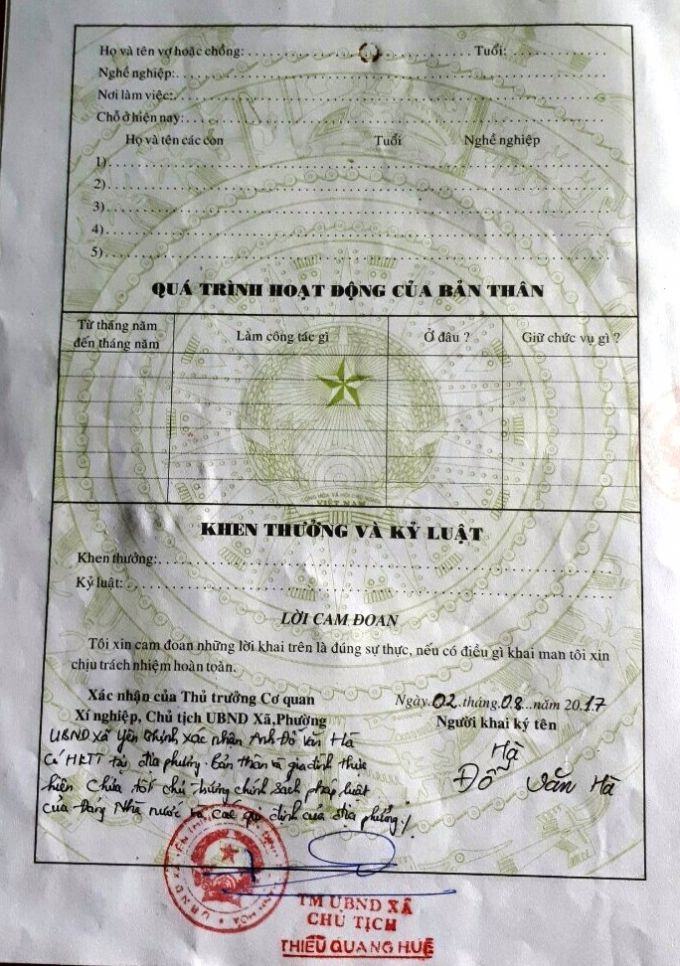 Họ và tên vợ hoặc chồng: Tuổi:
Nghề nghiệp:
Nơi làm việc:
Chỗ ở hiện nay:
Họ và tên các con Tuổi Nghề nghiệp
1)
2)
3)
4)
5)
QUÁ TRÌNH HOẠT ĐỘNG CỦA BẢN THÂN
Từ tháng năm
đến tháng năm
Làm công tác gì
Ở đâu ?
Giữ chức vụ gì ?
VIỆT NAM
KHEN THƯỞNG VÀ KỶ LUẬT
Khen thưởng:
Kỷ luật:
LỜI CAM ĐOAN
Tôi xin cam đoan những lời khai trên là đúng sự thực, nếu có điều gì khai man tôi xin
chịu trách nhiệm hoàn toàn.
Xác nhận của Thủ trưởng Cơ quan
Xí nghiệp, Chủ tịch UBND Xã,Phường
Ngày 02 tháng 08 năm 2017
Người khai ký tên
UBND xã Yên Thịnh xác nhận Anh Đỗ Văn Hà
Có HKTT tại địa phương. bản thân và gia đình thực
hiện Chưa tốt chủ trương chính sách pháp luật
của Đảng Nhà nước và các qui định của địa phương ./.
Hà
Đỗ Văn Hà
TM UBND XÃ
CHỦ TỊCH
THIỀU QUANG HUÊ